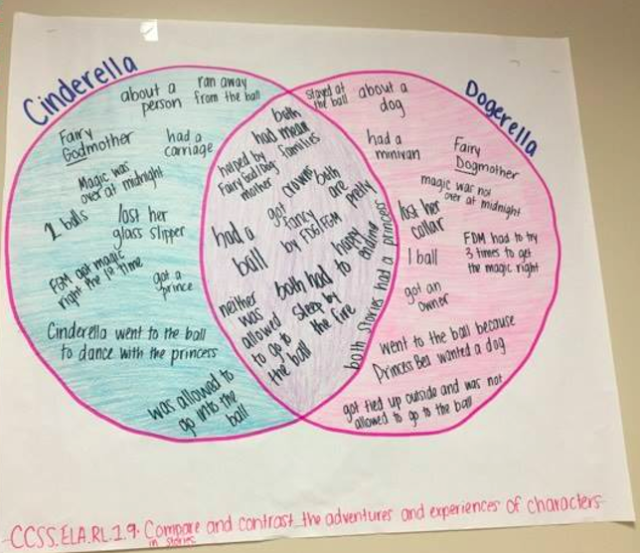 Cinderella
about a
person
ran away
from the ball
Fairy
Godmother
had a
carriage
Magic was
over at midnight
2 balls
lost her
glass slipper
FGM got magic
right the 1st time
got a
prince
Cinderella went to the ball
to dance with the princess
was allowed to
go into the
ball
both
had mean
families
helped by
Fairy God/Dog
mother
crowns
both
are
pretty
got
fancy
by FDG/FGM
had a
ball
happy
ending
both had to
sleep by
the fire
neither
was
allowed
to go to
the ball
both stories had a princess
Dogerella
stayed at
the ball
about a
dog
had a
minivan
Fairy
Dogmother
magic was not
over at midnight
lost her
collar
1 ball
FDM had to try
3 times to get
the magic right
got an
owner
went to the ball because
Princess Bea wanted a dog
got tied up outside and was not
allowed to go to the ball
CCSS.ELA.RL.1.9. Compare and contrast the adventures and experiences of characters
in stories